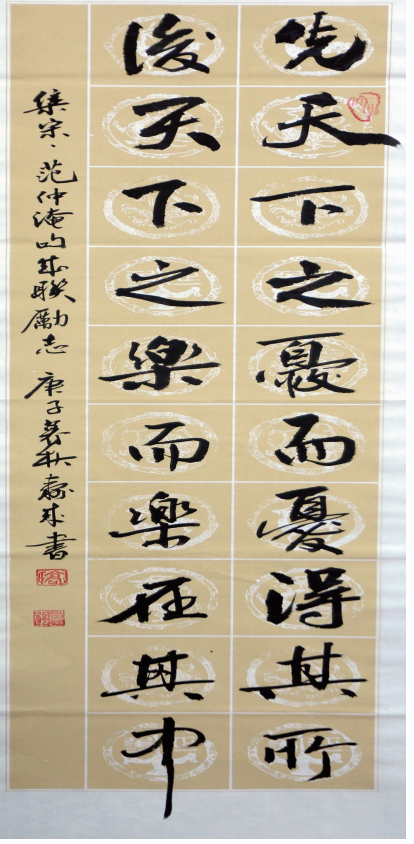 先天下之憂而憂得其所
後天下之樂而樂在其中
集宋、范仲淹句成联勵志 庚子暮秋壽成書